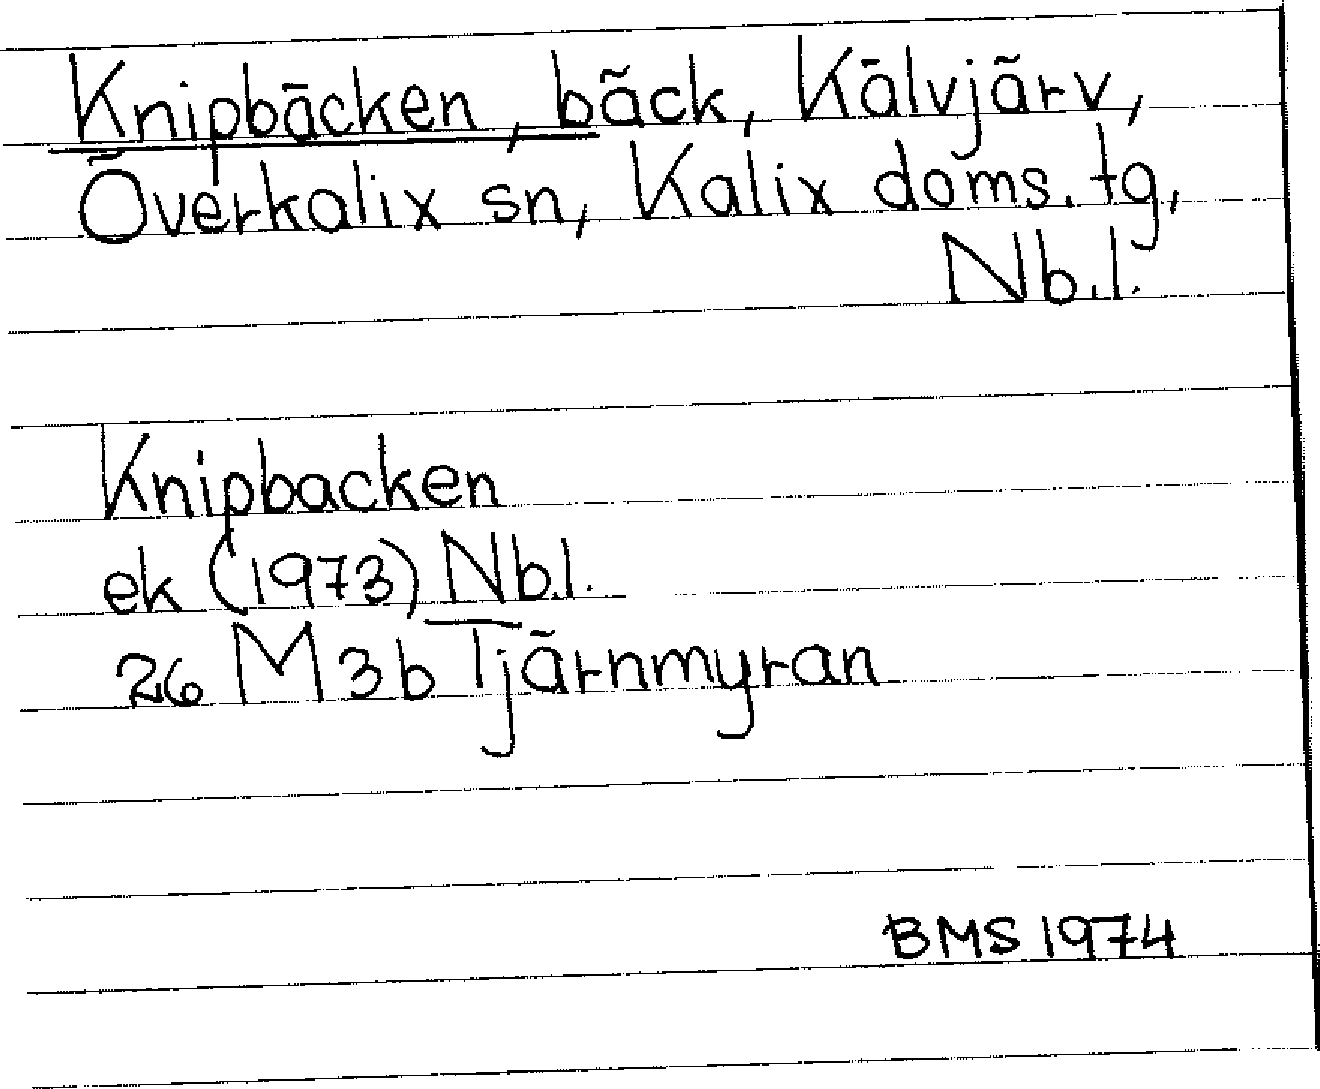 Knipbäcken, bäck, Kälvjärv,
Överkalix sn, Kalix doms. tg,
Nb.l.
Knipbacken
ek (1973) Nb.l.
26 M 3b Tjärnmyran
BMS 1974